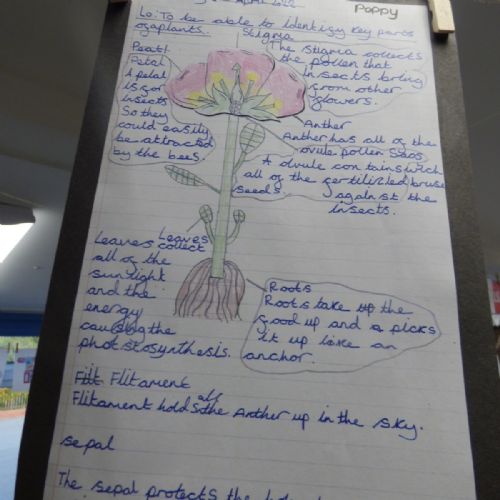 Poppy
Lo: To be able to identify key parts
of a plants.
Stigma
The stigma collects
the pollen that
insects bring
from other
flowers.
Petal
A petal
is for
insects
So they
could easily
be attracted
by the bees.
Anther
Anther has all of the
ovule pollen
A ovule contains
all of the fertilizled
seeds
against the
insects.
Leaves
Leaves collect
all of the
sunlight
and the
energy
causing the
photstosynthesis.
Roots
Roots take up the
food up and a picks
it up like an
anchor.
Flitament
Flitament holds all the Anther up in the sky.
sepal
The sepal protects the